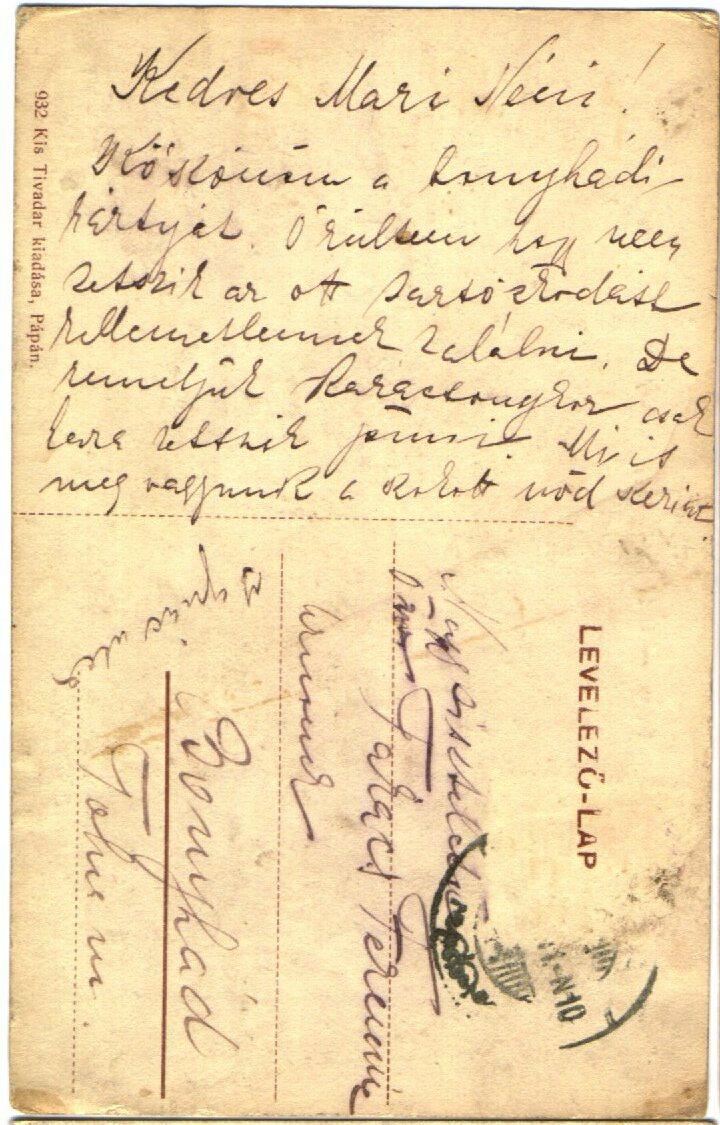 Kedves Mari Néni!
Köszönöm a bonyhádi
kártyát. Örültem hogy nem
tetszik az ott tartózkodást
kellemetlennek találni. De
reméljük Karácsonykor csak
haza tetszik jönni. Mi is
meg vagyunk a szokott mód szerint.
932 Kis Tivadar kiadása, Pápán.
LEVELEZŐ-LAP
Nagyságos
Takács Ferencné
urnőnek
Bonyhád
Tolna m.
N10